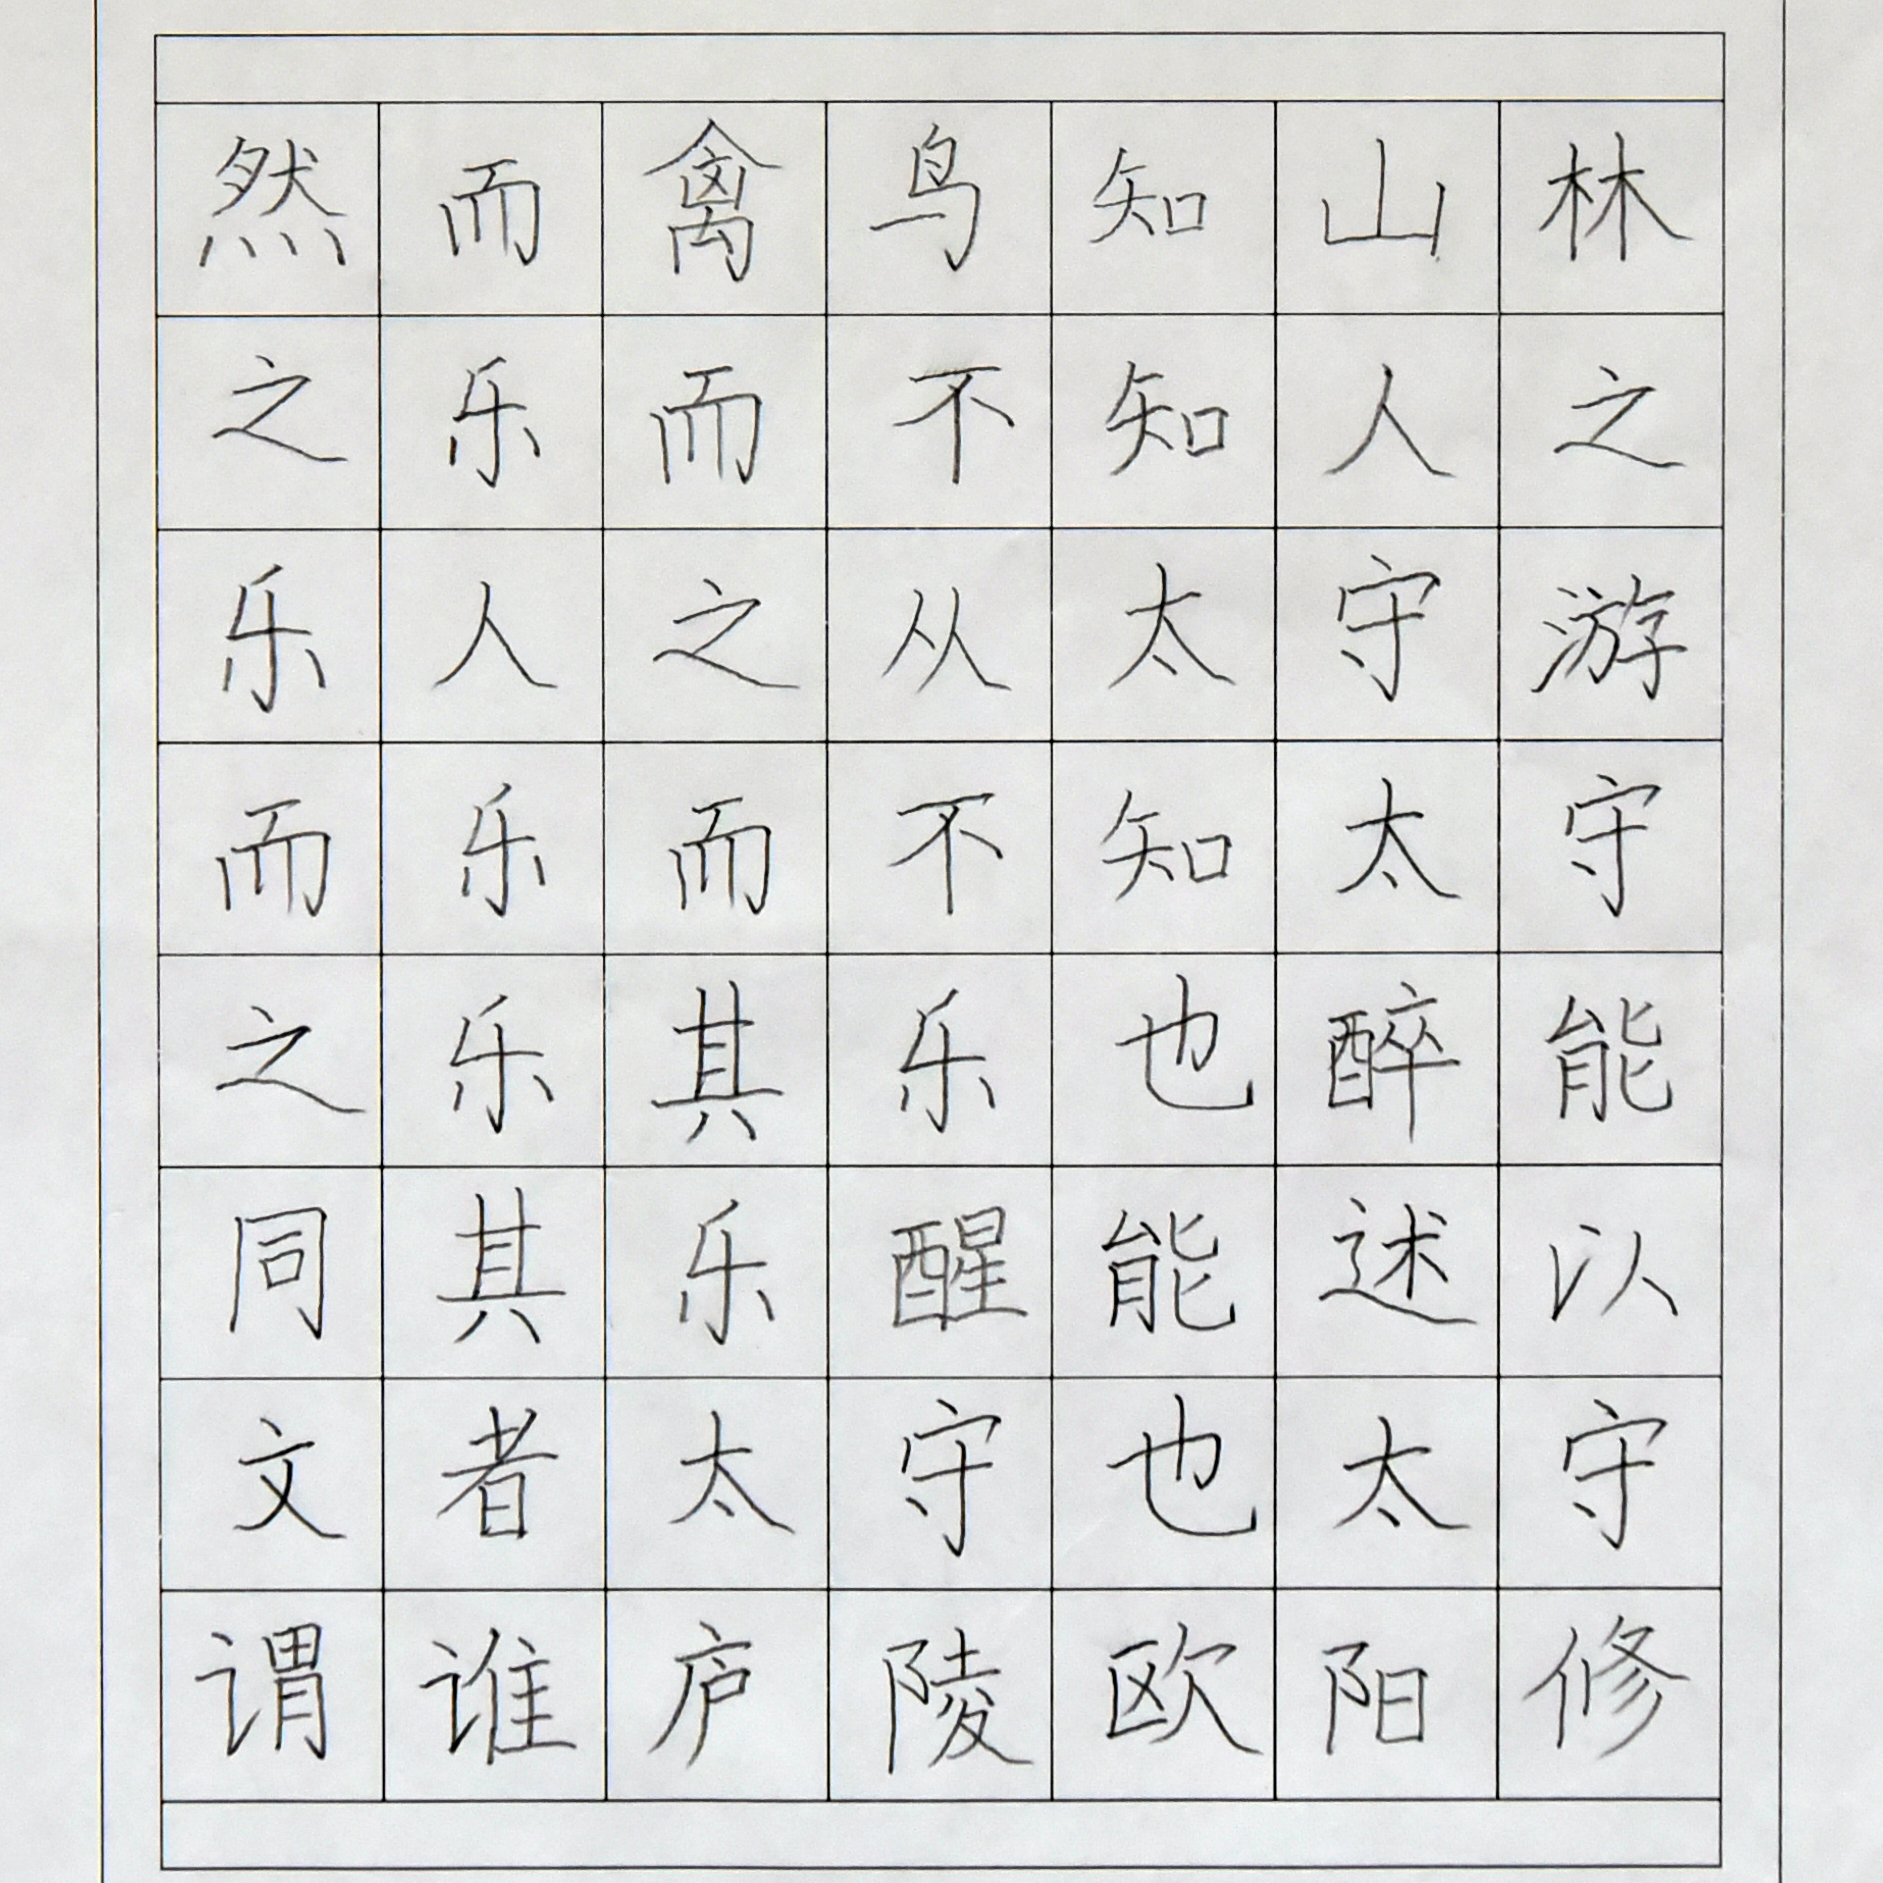 然而禽鸟知山林
之乐而不知人之
乐人之从太守游
而乐而不知太守
之乐其乐也醉能
同其乐醒能述以
文者太守也太守
谓谁庐陵欧阳修